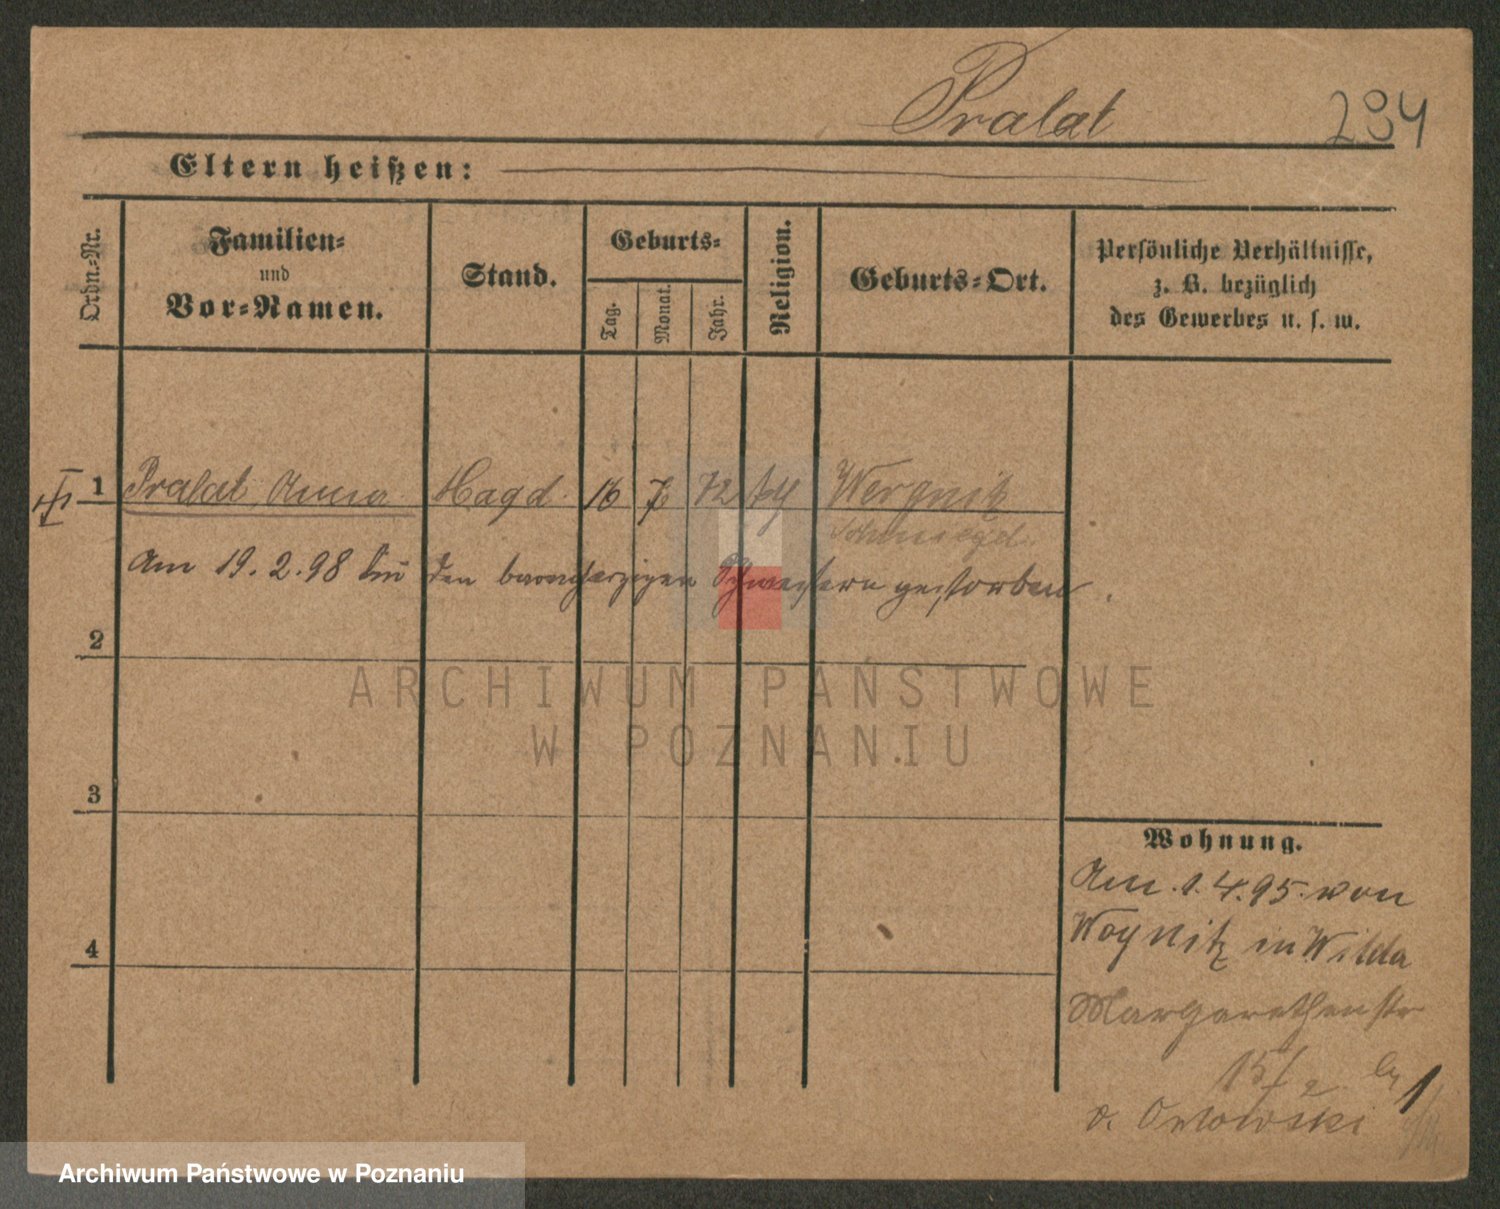 Pralat 294
Eltern heißen:
Ordn.-Nr.
Familien-
und
Vor-Namen.
Stand.
Geburts-
Tag.
Monat.
Jahr.
Religion.
Geburts-Ort.
Persönliche Verhältnisse,
z. B. bezüglich
des Gewerbes u. s. w.
1 Pralat Anna Magd 16 7 72
Schmiegel.
Am 19.2.98 bei den barmherzigen Schwestern gestorben.
2
3
4
Wohnung.
Am 1.4.95 von
Woynitz in Wilda
Margarethenstr
15/2 bei
v. Orlowski 1
ARCHIWUM PAŃSTWOWE
W POZNANIU
Archiwum Państwowe w Poznaniu